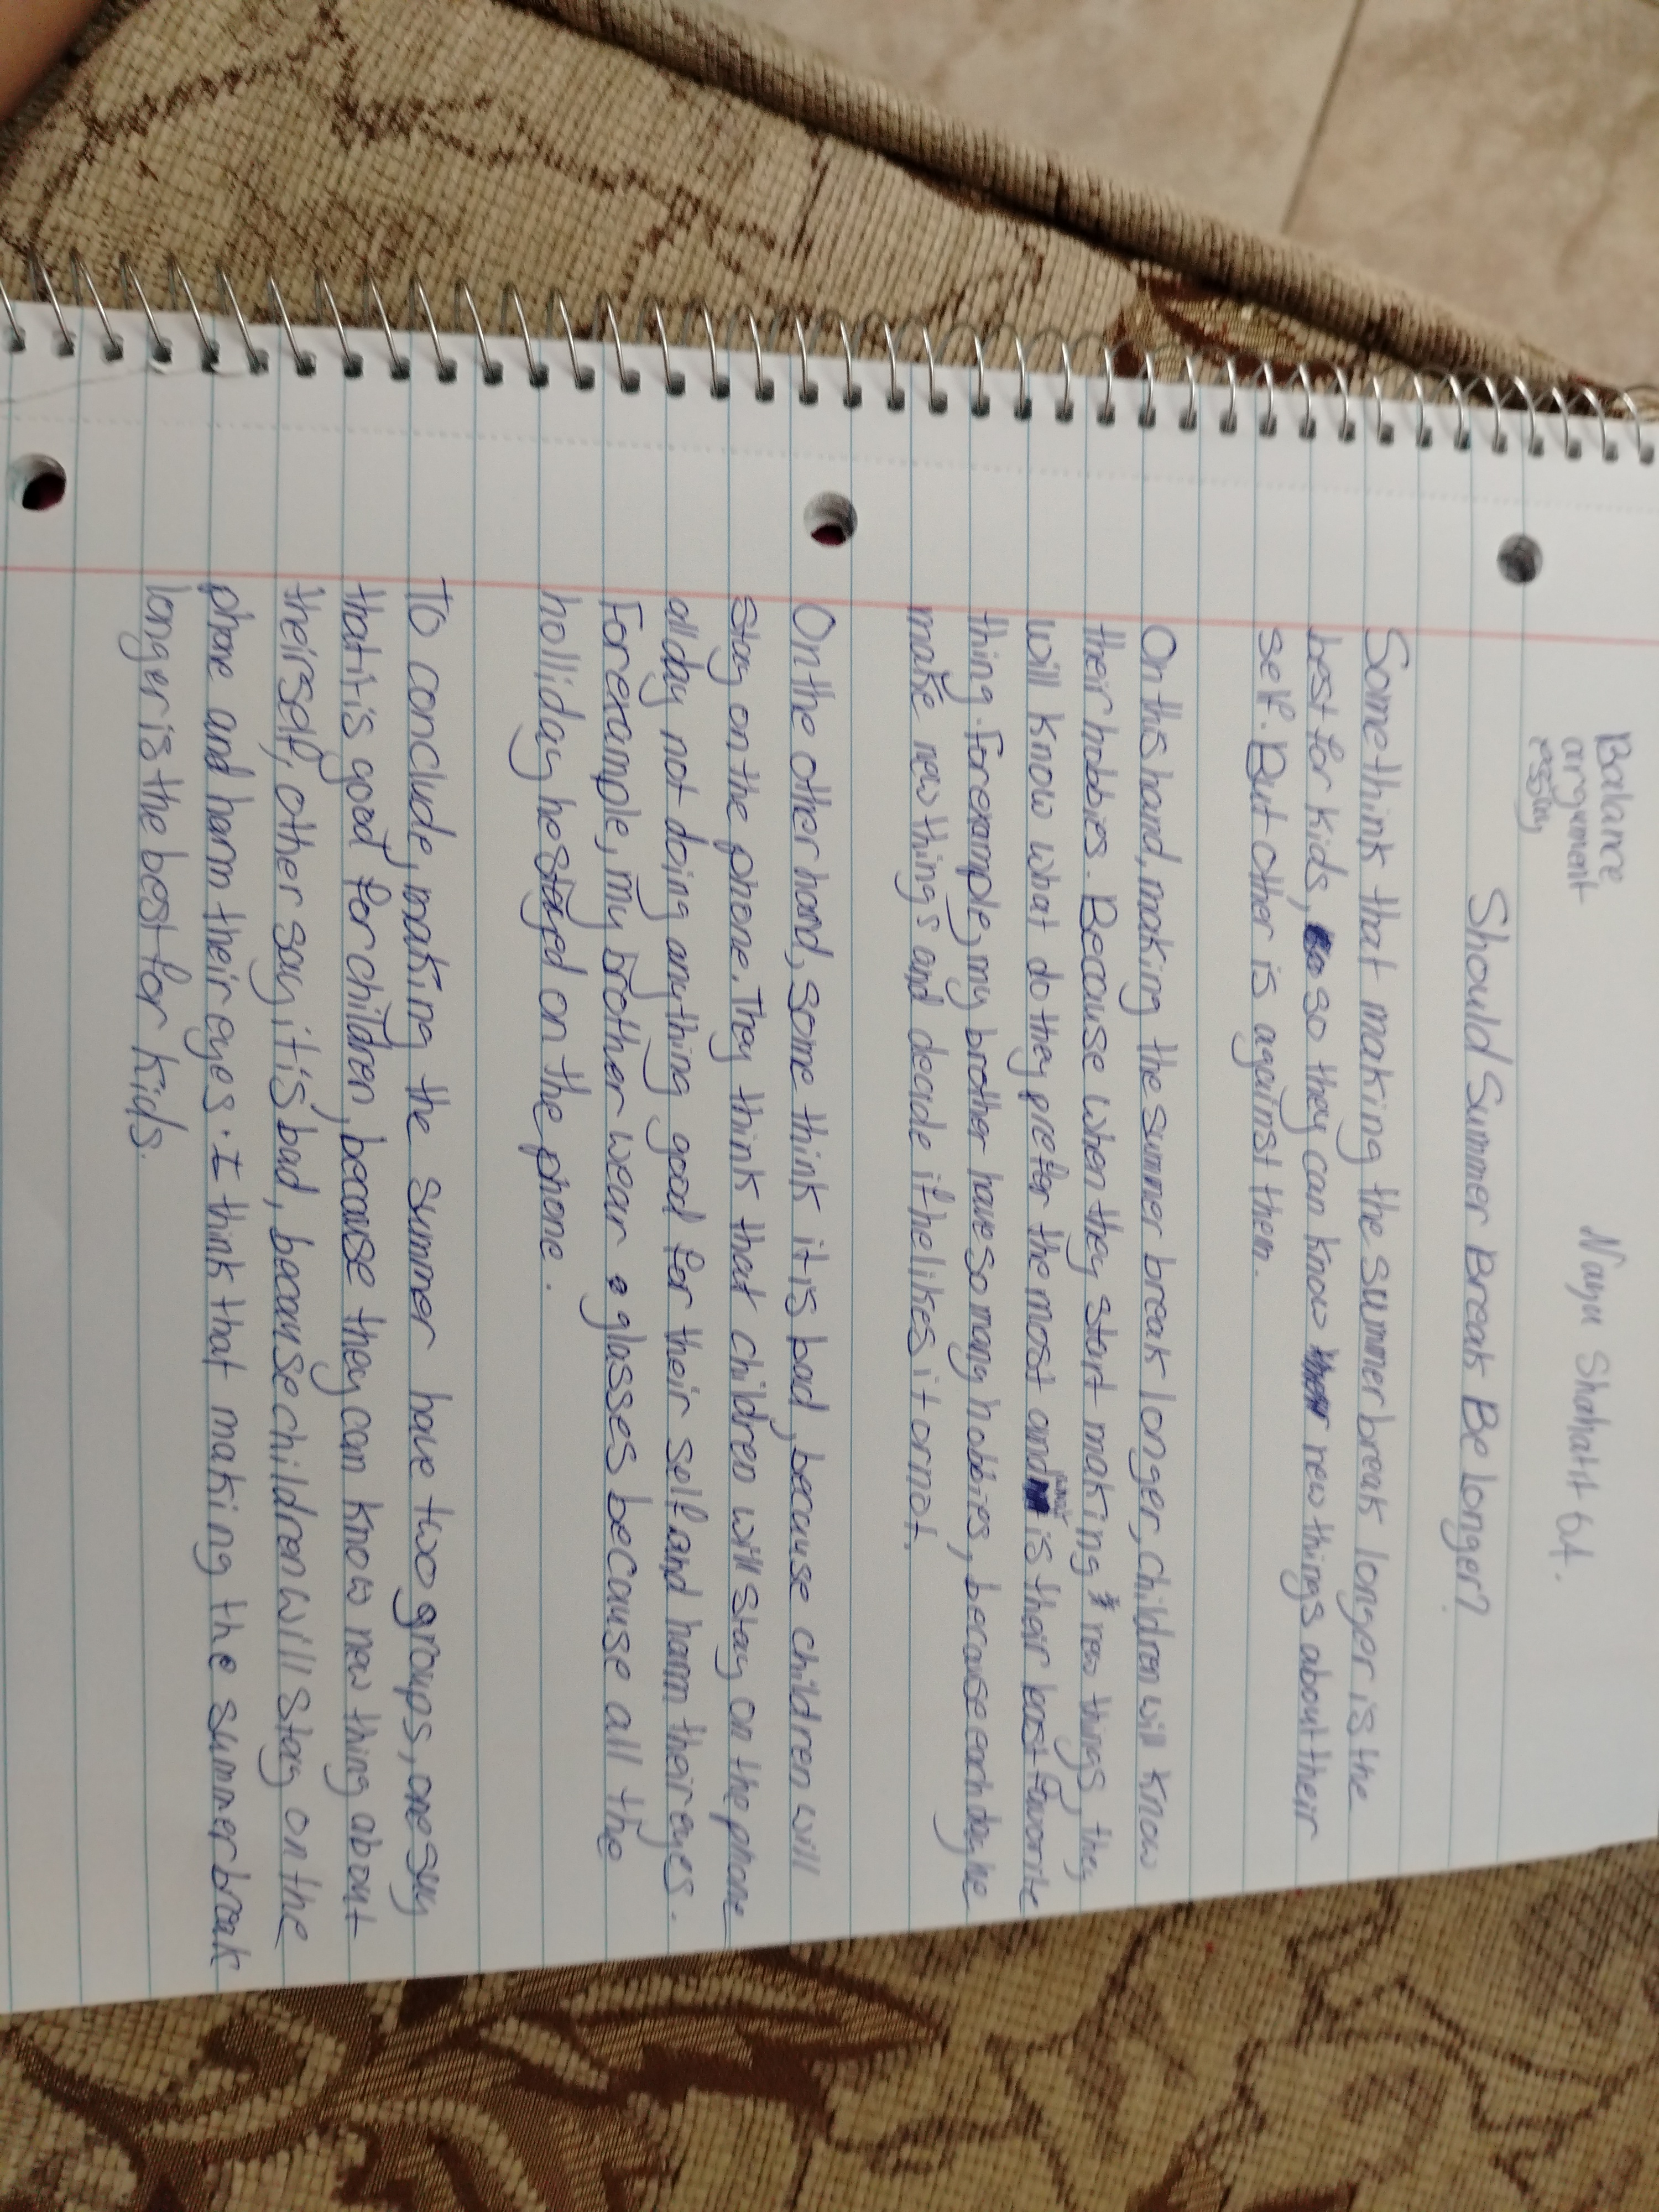 Balance
argument
essay
Naya Shahatit 6A.
Should Summer Break Be longer?
Some think that making the summer break longer is the
best for kids, so they can know new things about their
self. But other is against them.
On this hand, making the summer break longer, children will know
their hobbies. Because when they start making new things, they
will know what do they prefer the most and what is their best favorite
thing. For example, my brother have so many hobbies, because each day he
make new things and decide if he likes it or not.
On the other hand, some think it is bad, because children will
stay on the phone. They think that children will stay on the phone
all day not doing anything good for their self and harm their eyes.
For example, my brother wear glasses because all the
holliday he stayed on the phone.
To conclude, making the summer have two groups, one say
that it is good for children, because they can know new thing about
theirself, other say it is bad, because children will stay on the
phone and harm their eyes. I think that making the summer break
longer is the best for kids.